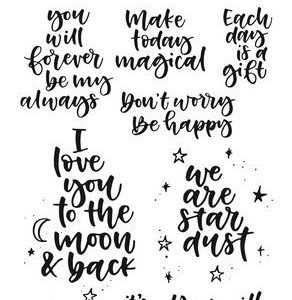 you
will
forever
be my
always
Make
today
magical
Each
day
is a
gift
Don't worry
Be happy
I
love
you
to the
moon
& back
we
are
star
dust